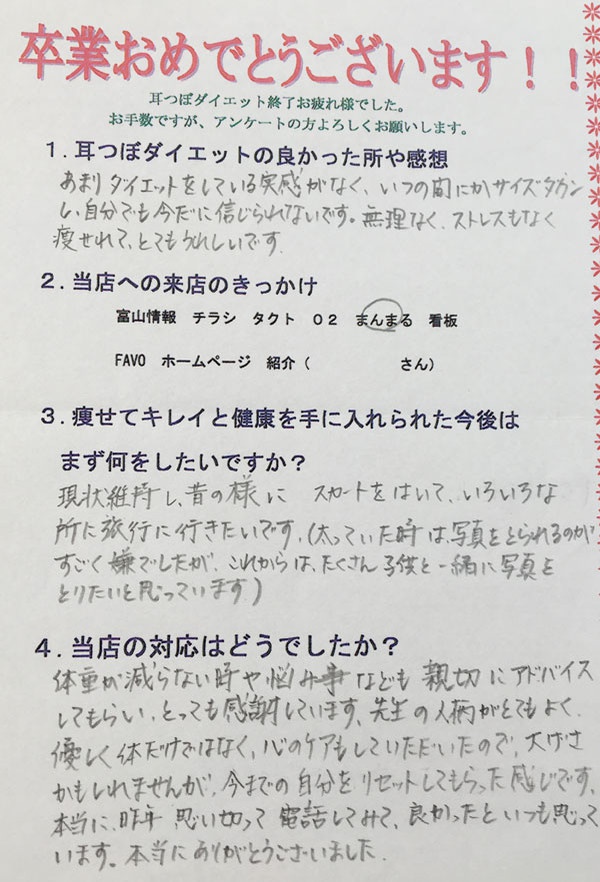 卒業おめでとうございます！！
耳つぼダイエット終了お疲れ様でした。
お手数ですが、アンケートの方よろしくお願いします。
１．耳つぼダイエットの良かった所や感想
あまりダイエットをしている実感がなく、いつの間にかサイズダウン
し、自分でも今だに信じられないです。無理なく、ストレスもなく
痩せれて、とてもうれしいです。
２．当店への来店のきっかけ
富山情報 チラシ タクト Ｏ２ まんまる 看板
FAVO ホームページ 紹介（ さん）
３．痩せてキレイと健康を手に入れられた今後は
まず何をしたいですか？
現状維持し、昔の様に スカートをはいて、いろいろな
所に旅行に行きたいです。（太っていた時は、写真をとられるのが
すごく嫌でしたが、これからは、たくさん子供と一緒に写真を
とりたいと思っています）
４．当店の対応はどうでしたか？
体重が減らない時や悩み事なども親切にアドバイス
してもらい、とっても感謝しています。先生の人柄がとてもよく、
優しく体だけではなく、心のケアもしていただいたので、大げさ
かもしれませんが、今までの自分をリセットしてもらった感じです。
本当に、昨年 思い切って電話してみて、良かったといつも思って
います。本当にありがとうございました。